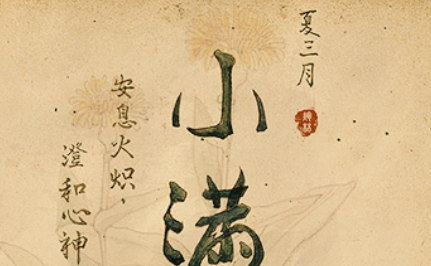 夏三月
小满
安息火炽，
澄和心神